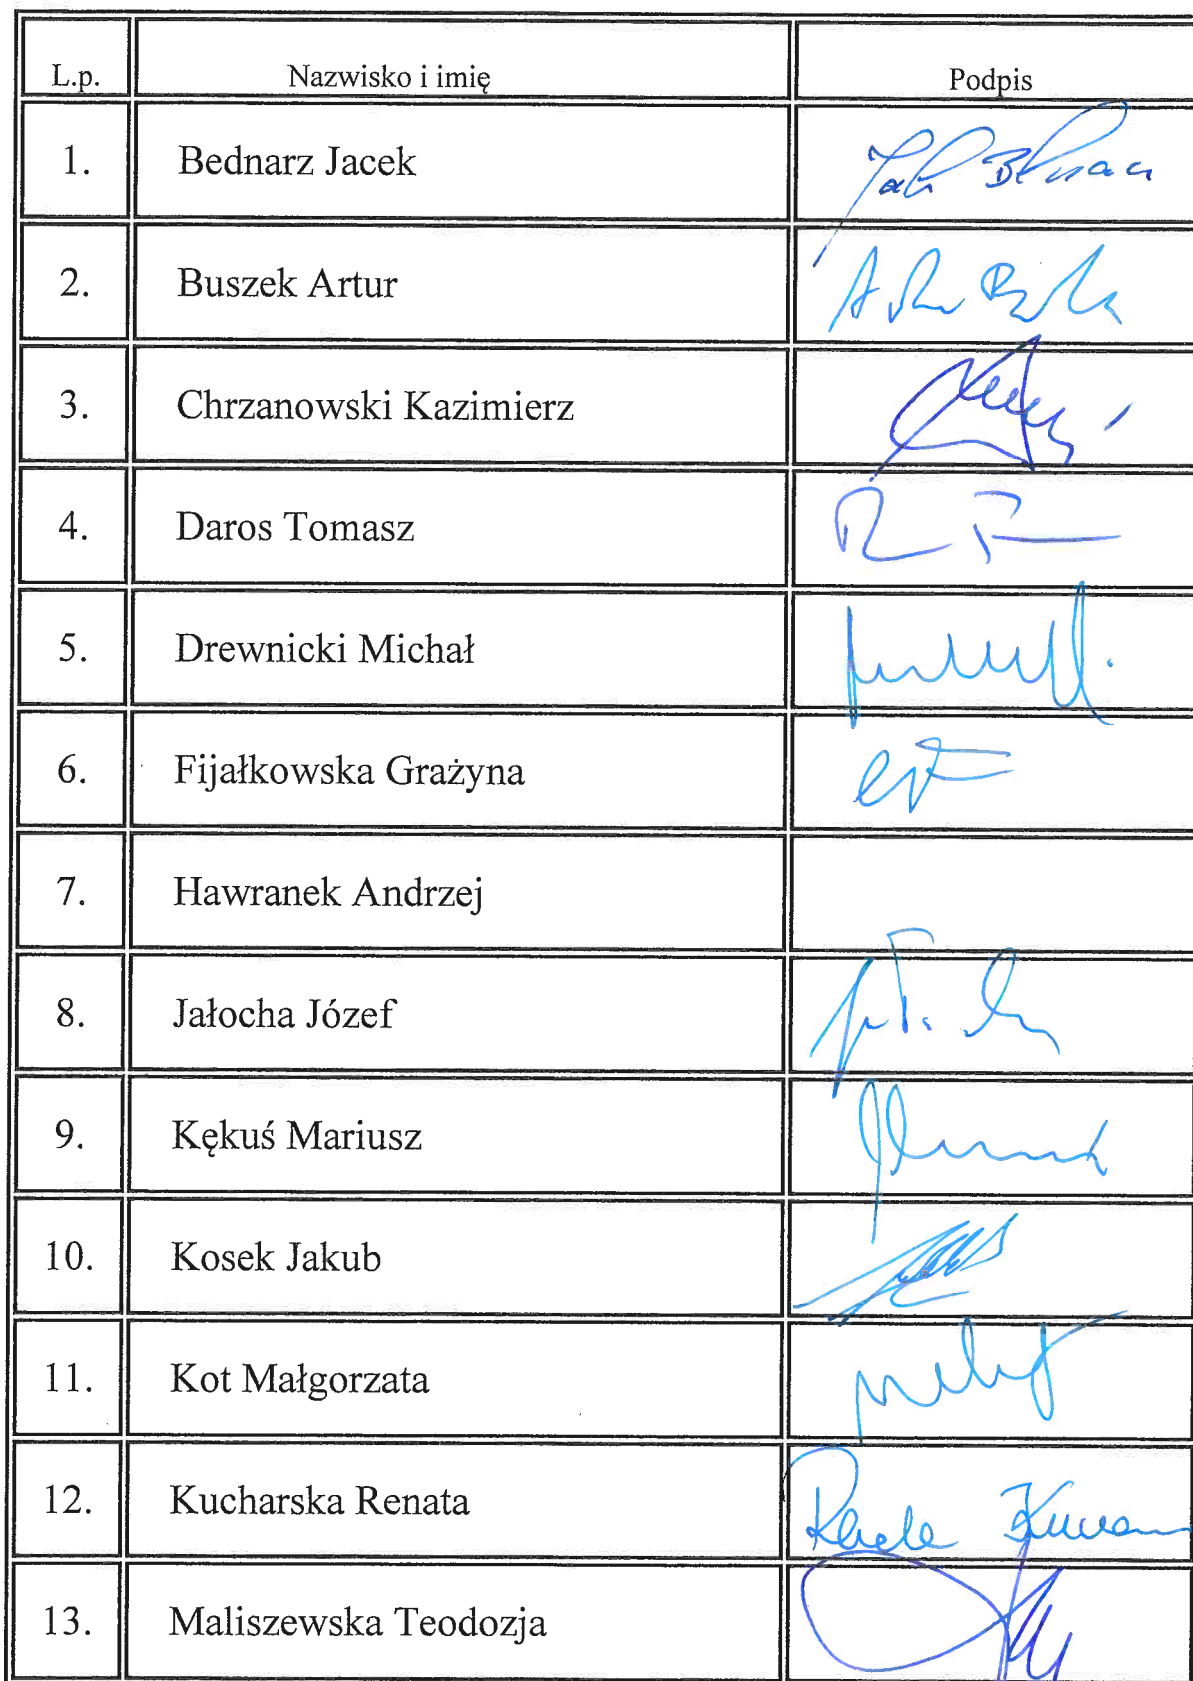 L.p. Nazwisko i imię Podpis
1. Bednarz Jacek
2. Buszek Artur
3. Chrzanowski Kazimierz
4. Daros Tomasz
5. Drewnicki Michał
6. Fijałkowska Grażyna
7. Hawranek Andrzej
8. Jałocha Józef
9. Kękuś Mariusz
10. Kosek Jakub
11. Kot Małgorzata
12. Kucharska Renata
13. Maliszewska Teodozja